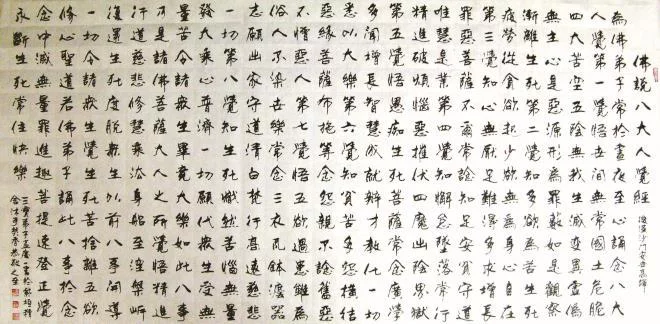 佛說八大人覺經 後漢沙門安世高譯
為佛弟子常於晝夜至心誦念八大
人覺第一覺悟世間無常國土危脆
四大苦空五陰無我生滅變異虛偽
無主心是惡源形為罪藪如是觀察
漸離生死第二覺知多欲為苦生死
疲勞從貪欲起少欲無為身心自在
第三覺知心無厭足唯得多求增長
罪惡菩薩不爾常念知足安貧守道
唯慧是業第四覺知懈怠墜落常行
精進破煩惱惡摧伏四魔出陰界獄
第五覺悟愚癡生死菩薩常念廣學
多聞增長智慧成就辯才教化一切
悉以大樂第六覺知貧苦多怨橫結
惡緣菩薩布施等念怨親不念舊惡
不憎惡人第七覺悟五欲過患雖為
俗人不染世樂常念三衣瓦缽法器
志願出家守道清白梵行高遠慈悲
一切第八覺知生死熾然苦惱無量
發大乘心普濟一切願代眾生受無
量苦令諸眾生畢竟大樂如此八事
乃是諸佛菩薩大人之所覺悟精進
行道慈悲修慧乘法身船至涅槃岸
復還生死度脫眾生以前八事開導
一切令諸眾生覺生死苦捨離五欲
修心聖道若佛弟子誦此八事於念
念中滅無量罪進趣菩提速登正覺
永斷生死常住快樂
三寶弟子